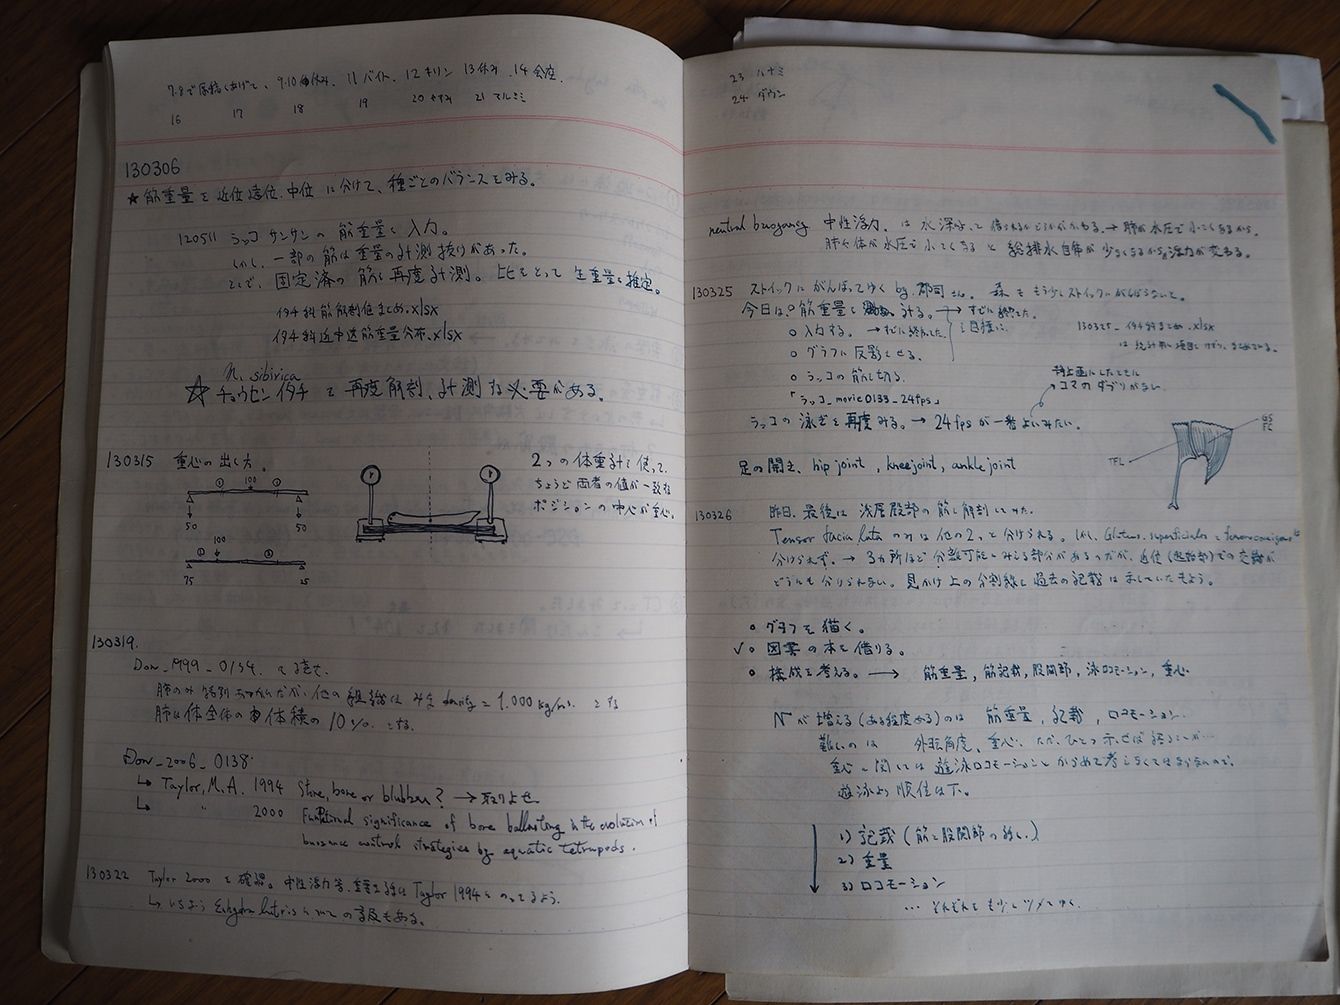 7.8で原稿しあげて、9.10 休み. 11 バイト. 12 キリン 13 休み. 14 会座.
16 17 18 19 20 やすみ 21
130306
★ 筋重量を近位遠位.中位に分けて、種ごとのバランスをみる。
120511 ラッコ サンサンの筋重量を入力。
しかし、一部の筋は重量の計測抜けがあった。
そこで、固定済の筋を再度計測。比をとって生重量を推定。
イタチ科筋解剖値まとめ.xlsx
イタチ科近中遠筋重量分布.xlsx
N. sibirica
☆ チョウセンイタチを再度解剖、計測する必要がある。
130315 重心の出し方。
① 100 ②
50 50
① 100 ②
75 25
2つの体重計を使って、
ちょうど両者の値が一致する
ポジションの中心が重心。
130319.
Dom_1999_0134. を読む.
肺のみ特別あつかいだが、他の組織はみな density = 1.000 kg/m³. とする
肺は体全体の体積の10%.とする.
Dom_2006_0138.
↳ Taylor, M.A. 1994 Stone, bone or blubber? → 取りよせ
↳ 〃 2000 Functional significance of bone ballasting in the evolution of
buoyancy control strategies by aquatic tetrapods.
130322 Taylor 2000 を確認。中性浮力等.重要な話は Taylor 1994 にのってるよう.
↳ いちおう Enhydra lutris についての言及もある。
23 ハナミ
24 ダウン
neutral buoyancy 中性浮力. は水深によって得られるかどうかがかわる. → 肺が水圧で小さくなるから.
肺や体が水圧で小さくなると 給排水自体が少なくなるから浮力が変わる。
130325 ストイックにがんばってゆく by 郡司さん. 森ももう少しストイックにがんばらないと。
今日は、○ 筋重量を みる. → すでに終えた.
○ 入力する. → すでに終えた.
○ グラフに反映させる.
を目標に.
130325_イタチ科まとめ.xlsx
は統計用に項目をけずり、まとめている.
○ ラッコの筋を切る.
「ラッコ_movie0133_24fps」
静止画にしたときに
コマのダブりがない
ラッコの泳ぎを再度みる. → 24fps が一番よいみたい.
足の開き、hip joint, knee joint, ankle joint
GS
FC
TFL
130326 昨日、最後に浅層殿部の筋を解剖してみた.
Tensor facia lata のみは他の2つと分けられる. しかし Gluteus superficialis と femorococcygeus は
分けられず. → 3カ所ほど分離可能にみえる部分があるのだが、近位(起始部)での交織が
どうにも分けられない. 見かけ上の分割線を過去の記載は示していたもよう.
○ グラフを描く。
✓○ 図表の本を借りる。
○ 構成を考える。 → 筋重量, 筋記載, 股関節, 泳ロコモーション, 重心
Nが増える(ある程度ある)のは 筋重量, 記載, ロコモーション.
難しいのは 外転角度、重心. ただ、ひとつ示せば語ることが…
重心に関しては遊泳ロコモーションとからめて考えなくてはならないので、
遊泳より順位は下。
1) 記載 (筋と股関節の話し)
2) 重量
3) ロコモーション
… それぞれもう少しツメてゆく.